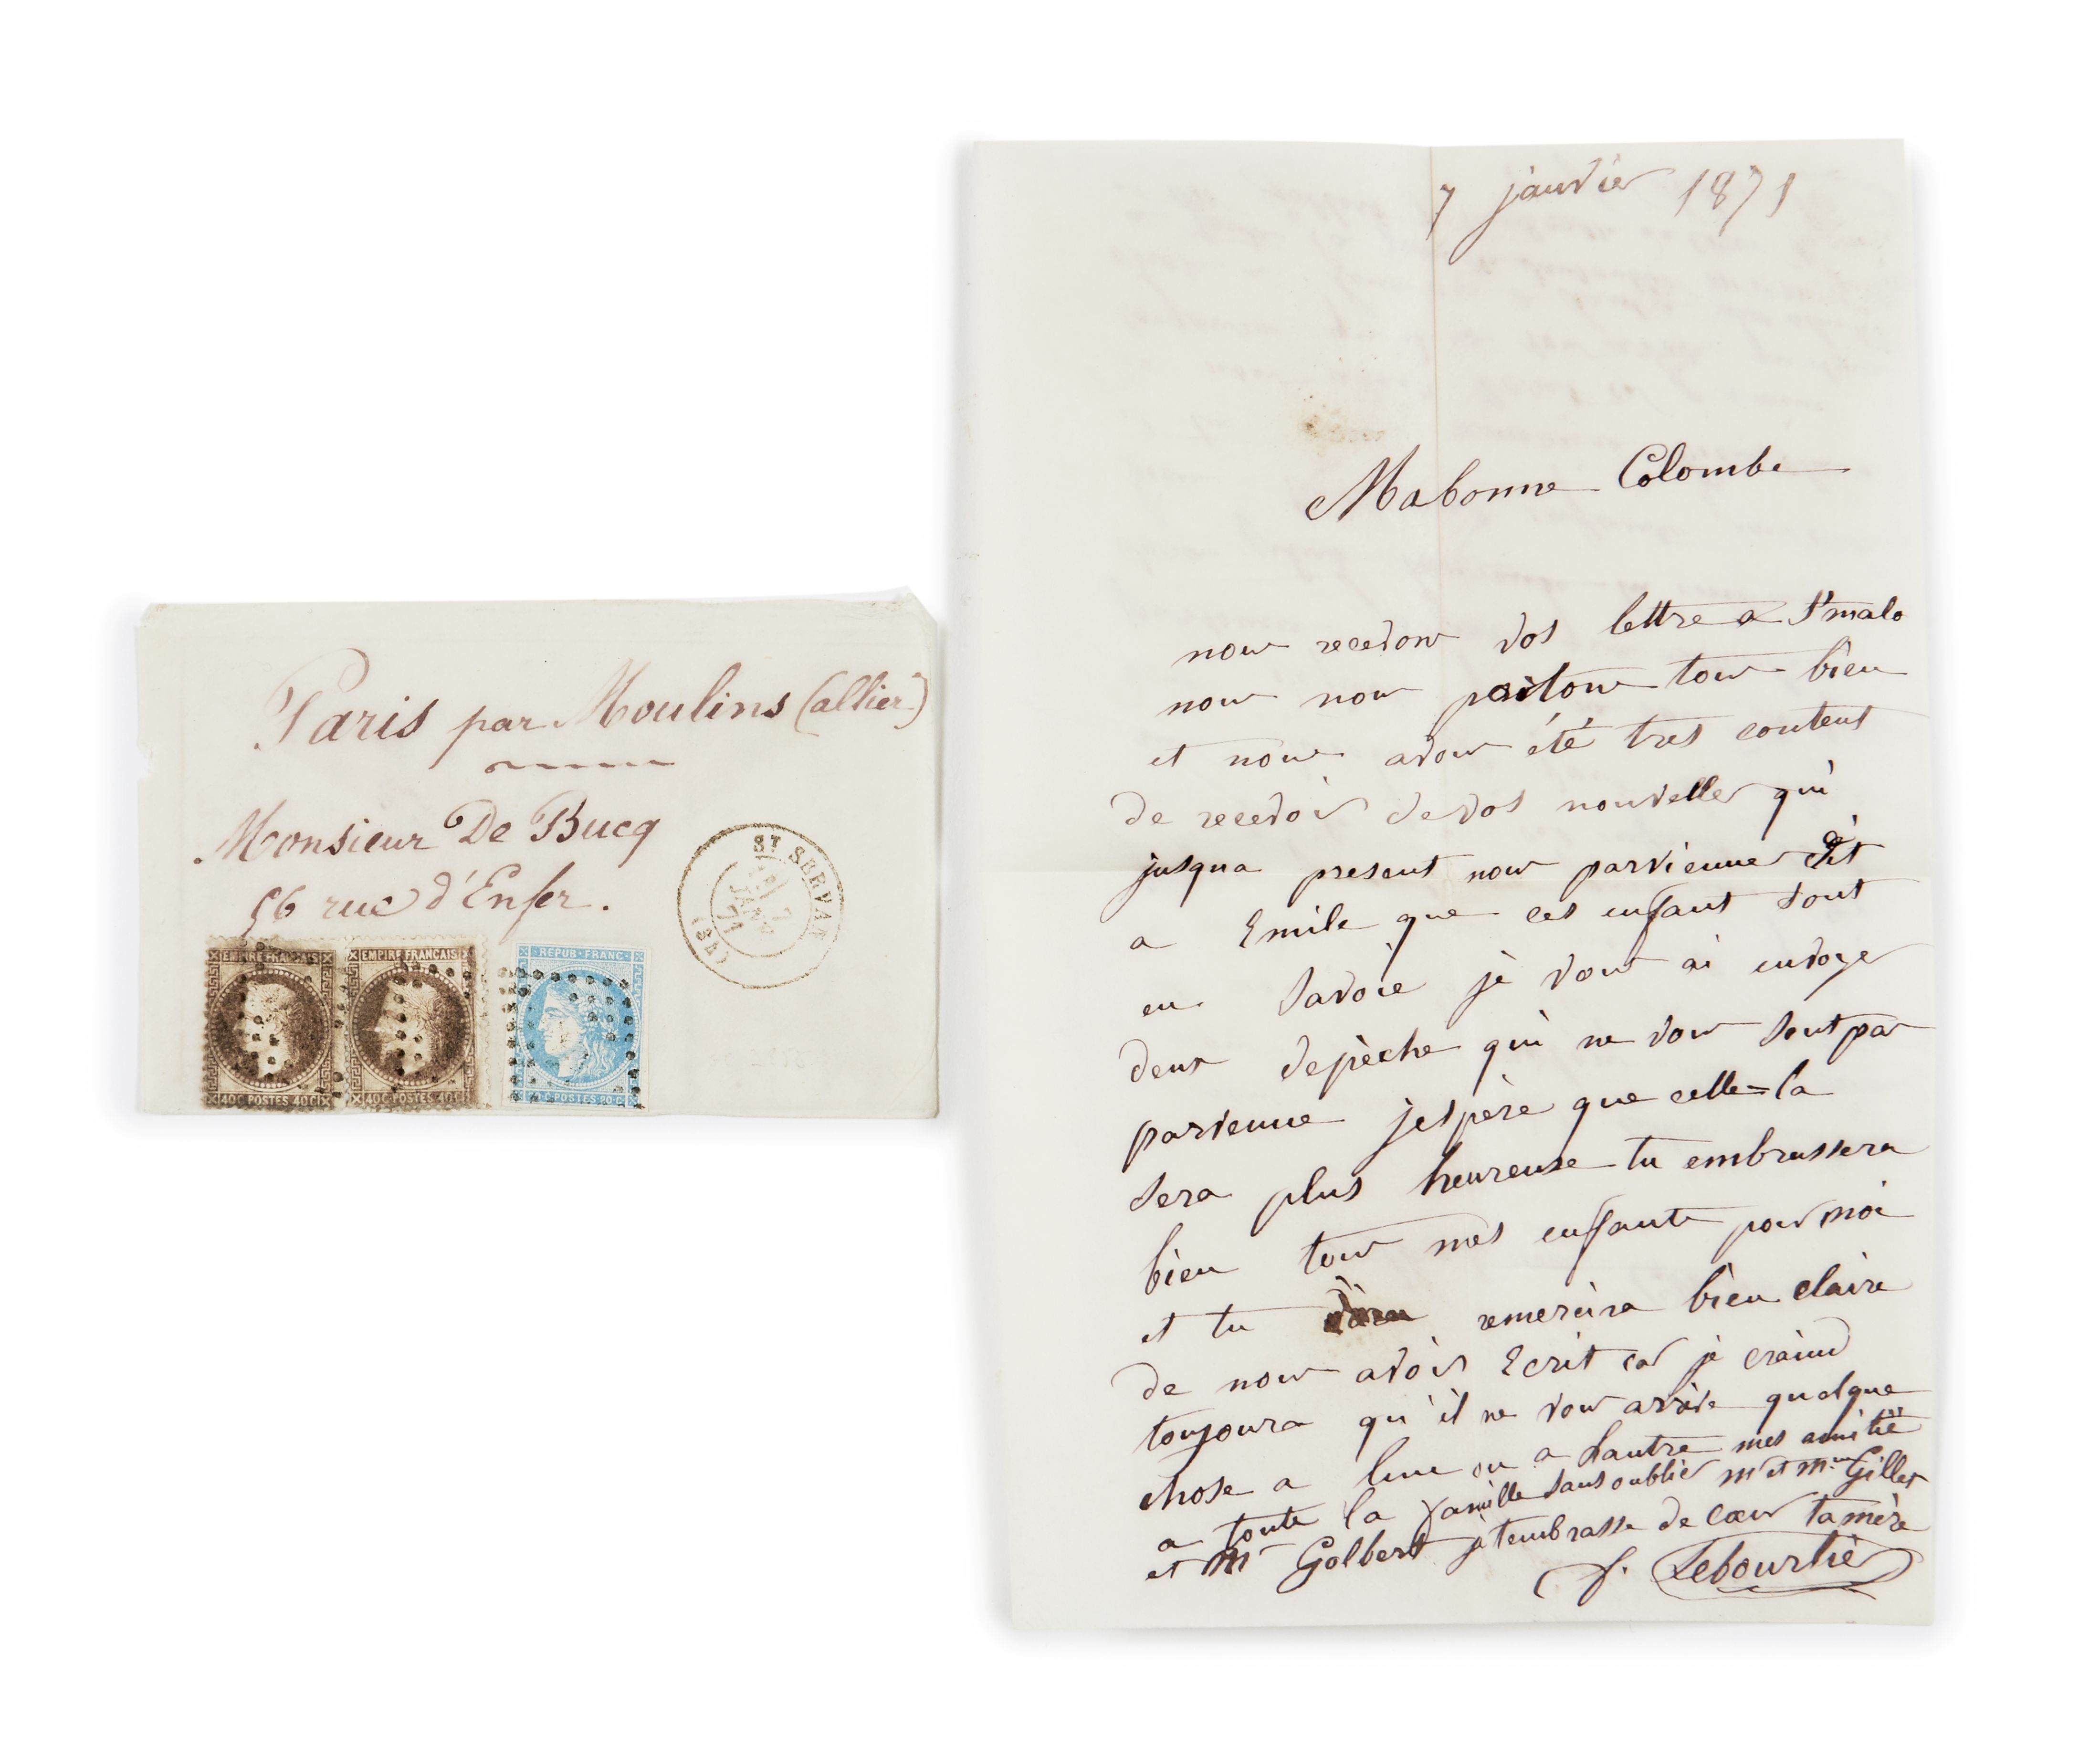 Paris par Moulins (allier)
Monsieur De Bucq
56 rue d'Enfer.
ST SERVAN
7
JANV
71
(34)
EMPIRE FRANÇAIS
40 C POSTES 40 C
EMPIRE FRANÇAIS
40 C POSTES 40 C
REPUB · FRANC ·
20 C · POSTES · 20 C
7 janvier 1871
Mabonne Colombe
nous recevons vos lettre a St malo
nous nous portons tous bien
et nous avons été tres content
de recevoir de vos nouvelles qui
jusqua present nous parvienne dit
a Emile que ces enfant sont
en Savoie je vous ai envoyer
deux depèche qui ne vous sont pas
parvenue jespère que celle-la
sera plus heureuse tu embrassera
bien tous mes enfants pour moi
et tu remercira bien claire
de nous avoir Ecrit car je craind
toujours qu'il ne vous arrive quelque
chose a lune ou a lautre mes amitié
a toute la famille sans oublier mr et mme Gilles
et Mr Golbert je tembrasse de cœur ta mère
f. Lebourlier